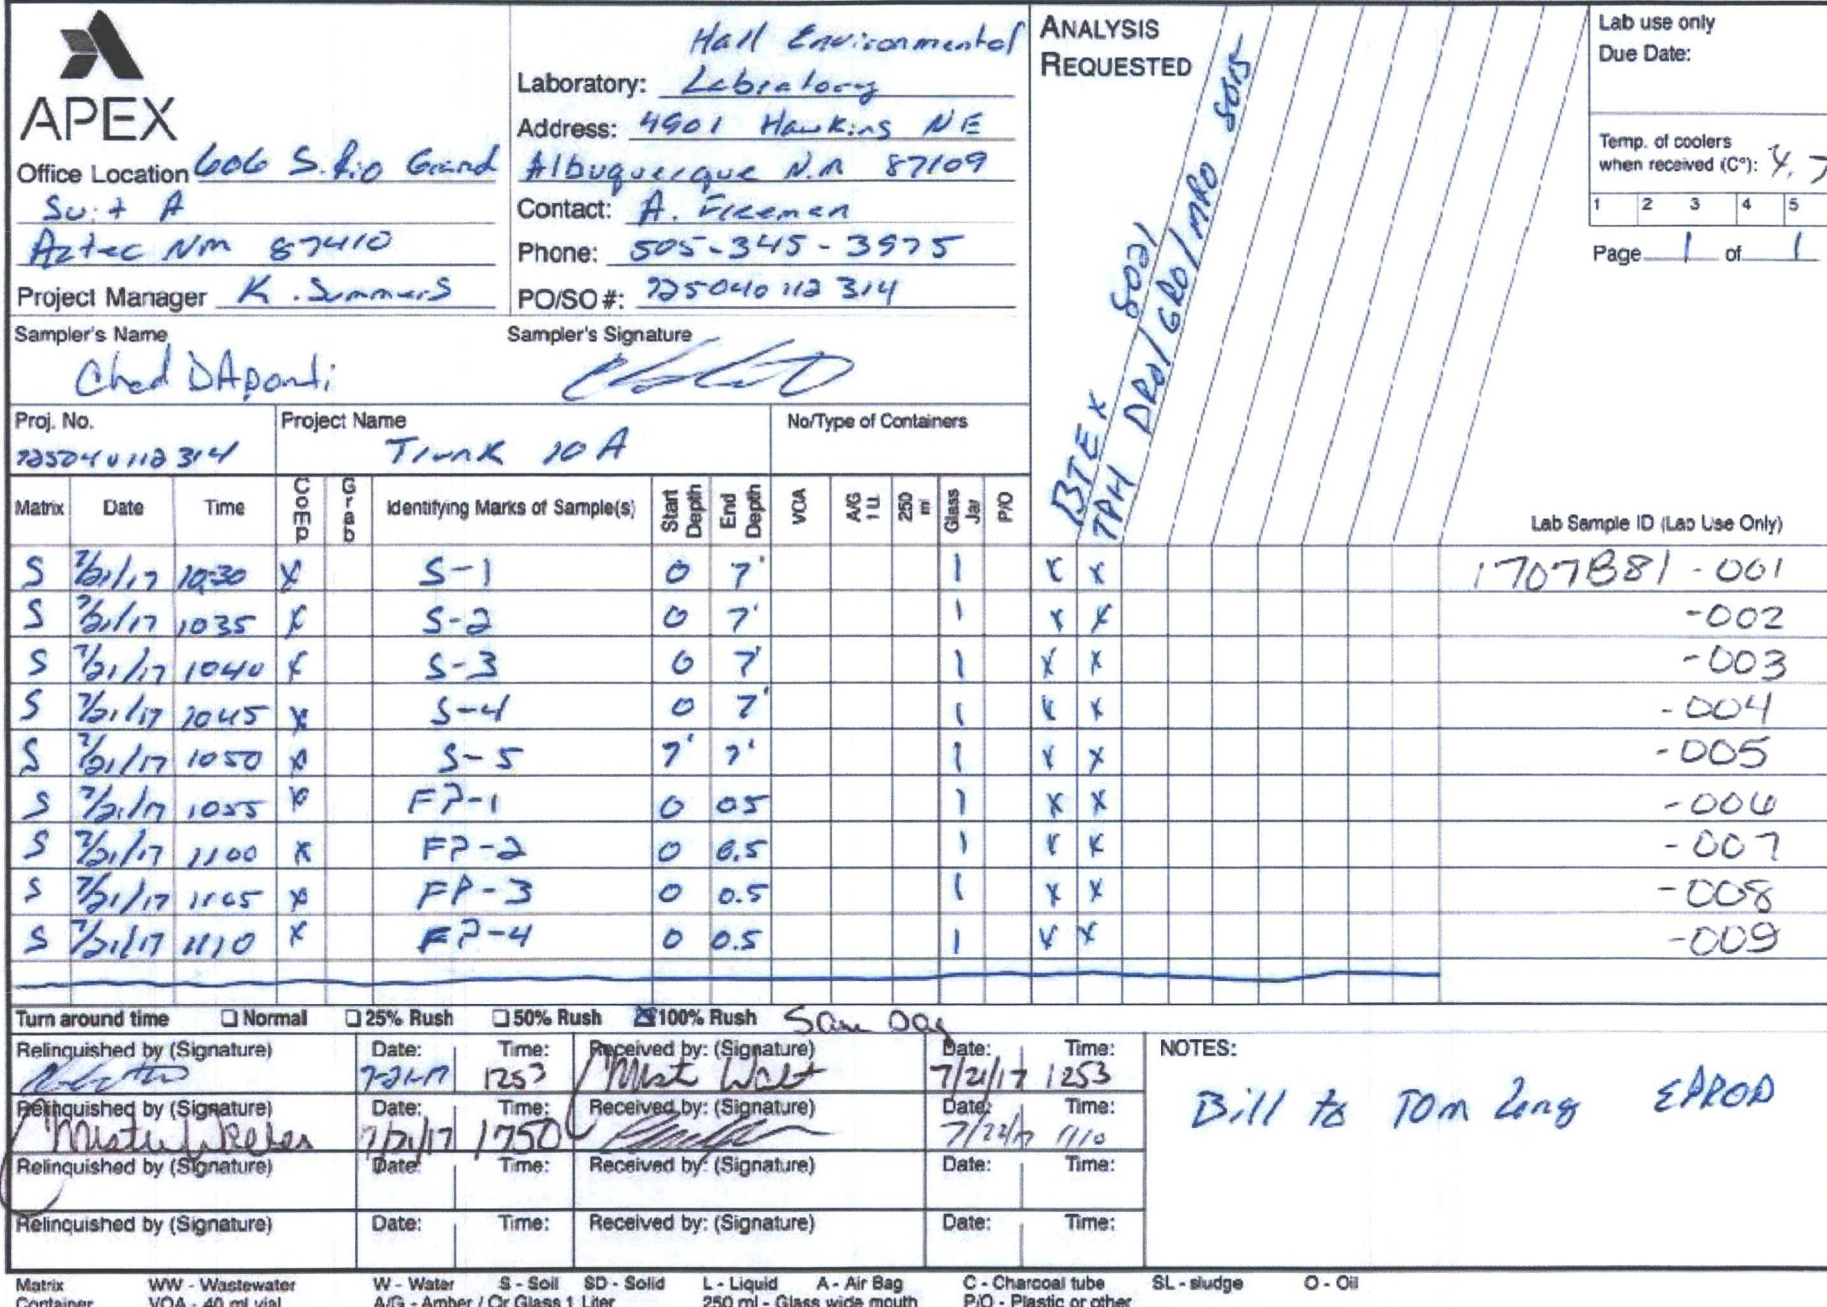 APEX
Office Location 606 S. Rio Grand
Suit A
Aztec NM 87410
Project Manager K. Summers
Hall Environmental
Laboratory:
Address: 4901 Hawkins NE
Albuquerque N.M 87109
Contact: A. Freeman
Phone: 505-345-3975
PO/SO #: 725040112314
ANALYSIS
REQUESTED
BTEX 8021
TPH DRO/GRO/MRO 8015
Lab use only
Due Date:
Temp. of coolers
when received (C°): 4.7
1 2 3 4 5
Page 1 of 1
Sampler's Name
Chad DAponti
Sampler's Signature
Proj. No.
725040112314
Project Name
Trunk 10A
No/Type of Containers
Matrix Date Time COMP Grab Identifying Marks of Sample(s) Start Depth End Depth VOA A/G 1 Lt. 250 ml Glass Jar P/O Lab Sample ID (Lab Use Only)
S 7/21/17 10:30 X S-1 0 7' 1 X X 1707B81-001
S 7/21/17 1035 X S-2 0 7' 1 X X -002
S 7/21/17 1040 X S-3 0 7' 1 X X -003
S 7/21/17 1045 X S-4 0 7' 1 X X -004
S 7/21/17 1050 X S-5 7' 7' 1 X X -005
S 7/21/17 1055 X FP-1 0 05 1 X X -006
S 7/21/17 1100 X FP-2 0 0.5 1 X X -007
S 7/21/17 1105 X FP-3 0 0.5 1 X X -008
S 7/21/17 1110 X FP-4 0 0.5 1 X X -009
Turn around time Normal 25% Rush 50% Rush 100% Rush Same Day
Relinquished by (Signature) Date: 7-21-17 Time: 1253 Received by: (Signature) Date: 7/21/17 Time: 1253
Relinquished by (Signature) Date: 7/21/17 Time: 1750 Received by: (Signature) Date: 7/22/17 Time: 1110
Relinquished by (Signature) Date: Time: Received by: (Signature) Date: Time:
Relinquished by (Signature) Date: Time: Received by: (Signature) Date: Time:
NOTES:
Bill to Tom Long EPROD
Matrix WW - Wastewater W - Water S - Soil SD - Solid L - Liquid A - Air Bag C - Charcoal tube SL - sludge O - Oil
Container VOA - 40 ml vial A/G - Amber / Or Glass 1 Liter 250 ml - Glass wide mouth P/O - Plastic or other